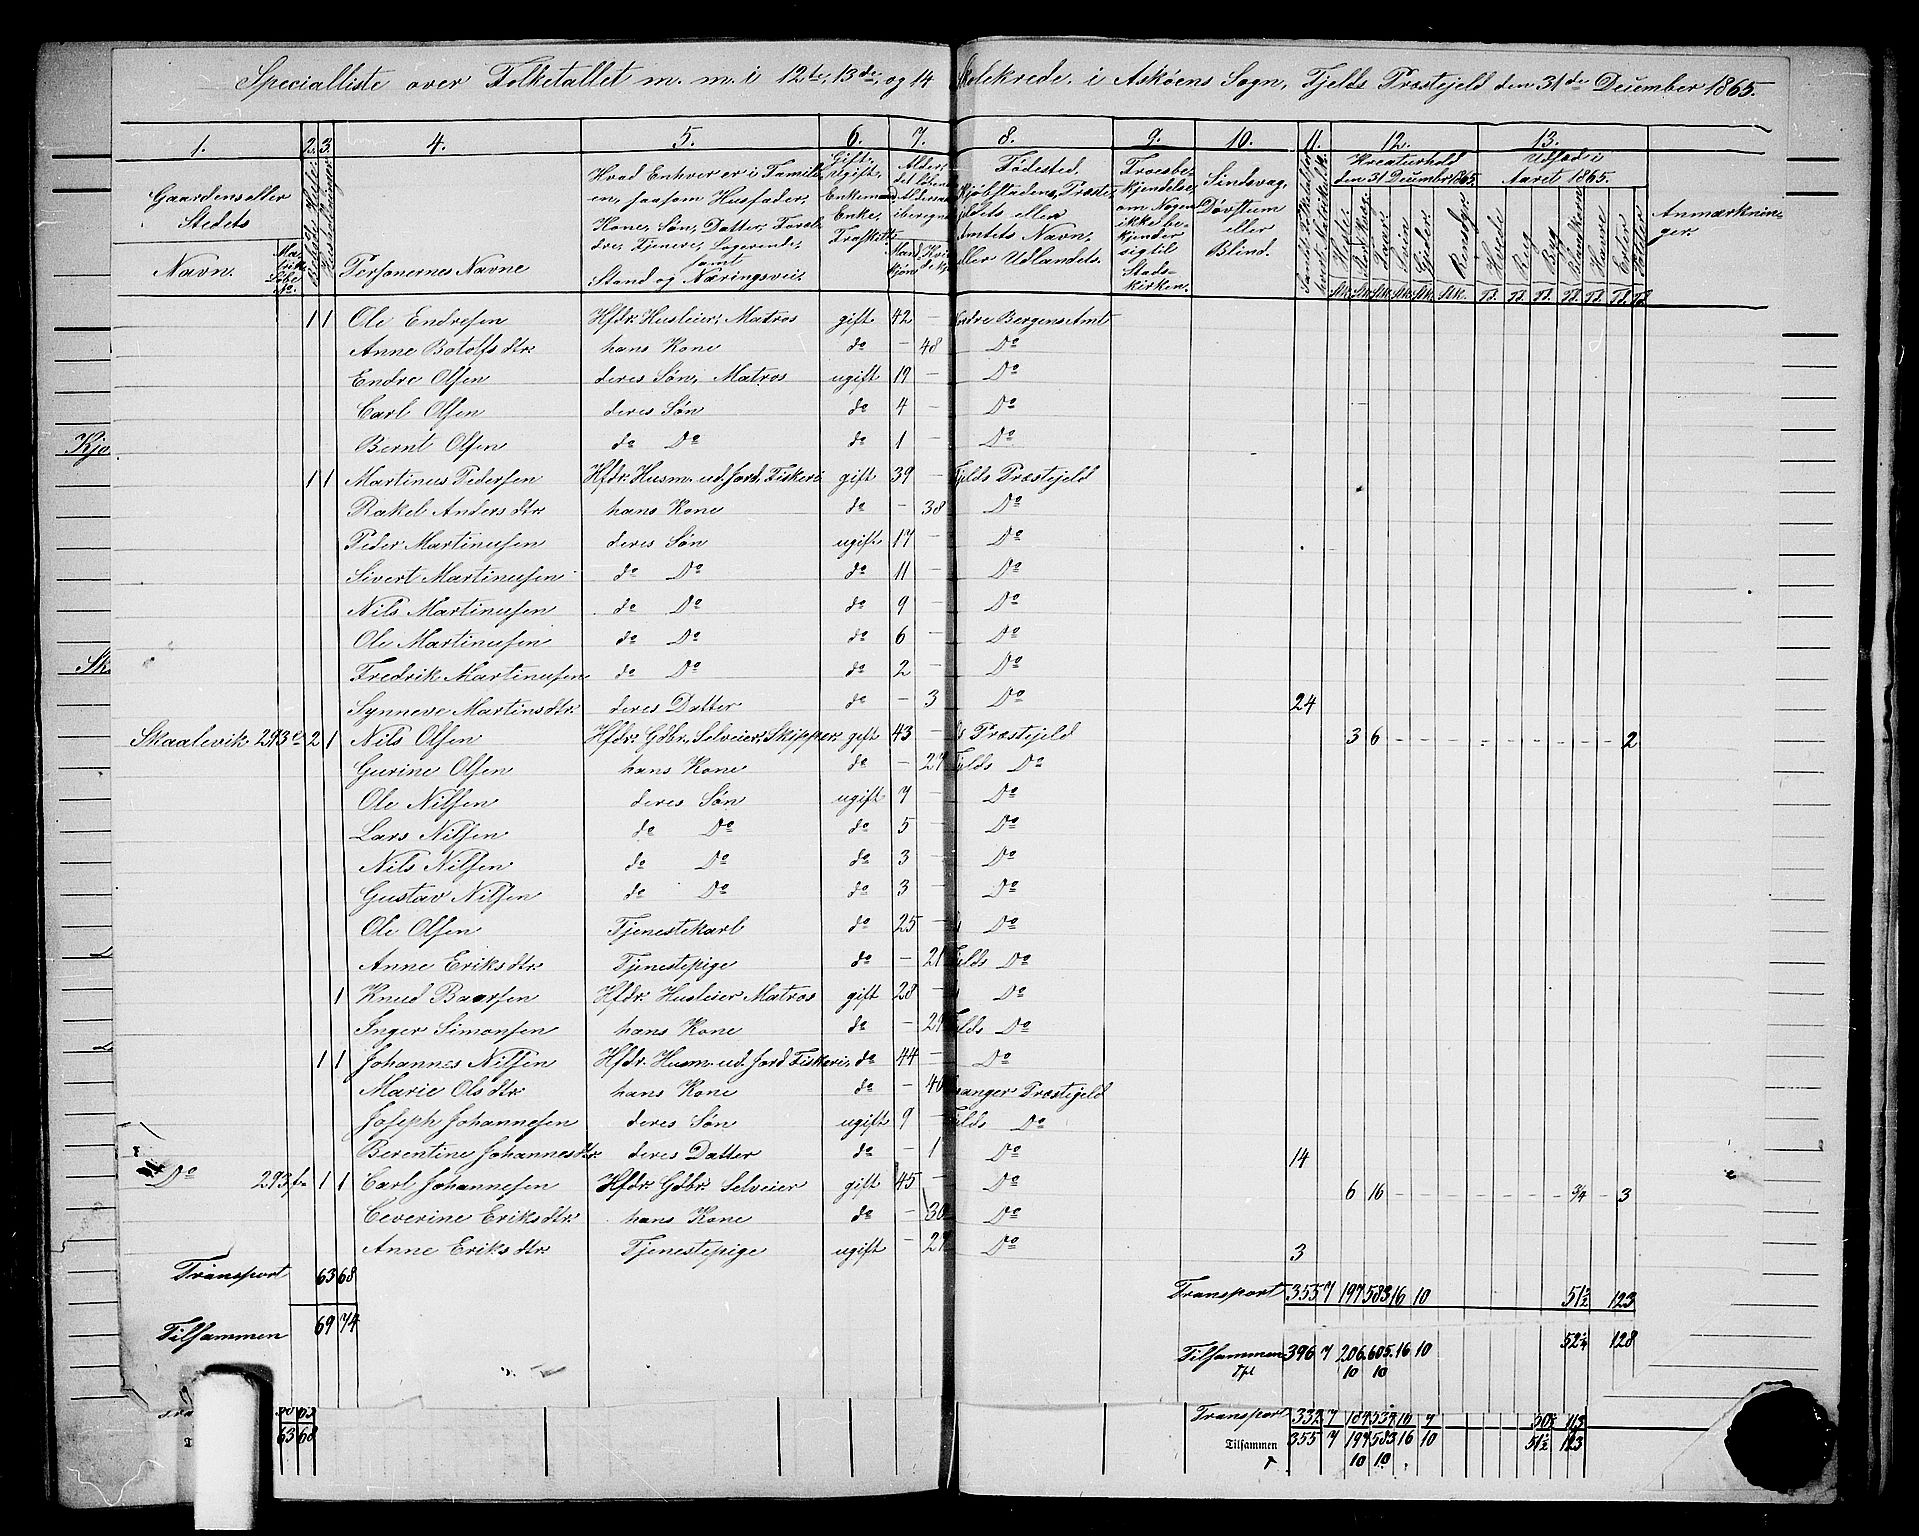 Specialliste over Folketallet m. m. i 12te, 13de og 14 Skolekreds i Askøens Sogn, Fjelds Præstejeld den 31de December 1865.
1. 2. 3. 4. 5. 6. 7. 8. 9. 10. 11. 12. 13.
Gaardens eller Stedets
Navn.
Personernes Navne
Hvad Enhver er i Famili-
en, saasom Husfader,
Kone, Søn, Datter, Foræl-
dre, Tjenere, Logerende,
samt
Stand og Næringsvei.
Gift,
ugift,
Enkemand
Enke,
Fraskilt
Fødested,
Kjøbstadens, Præste-
jeldets eller
Amtets Navn,
eller Udlandets.
Troesbe-
kjendelse,
om Nogen
ikke be-
kjender
sig til
Stads-
kirken.
Sindsvag,
Døvstum
eller
Blind.
Kreaturhold
den 31 December 1865.
Heste. Stort Kvæg. Faar. Svin. Gjeder. Rensdyr.
Udsæd i
Aaret 1865.
Hvede Rug Byg Havre Erter Poteter
Anmærknin-
ger.
1 1 Ole Endresen Hfdr. Husleier, Matros gift 42 – Søndre Bergens Amt
Anne Botolfsdtr. hans Kone do – 48 Do
Endre Olsen deres Søn, Matros ugift 19 – Do
Carl Olsen deres Søn do 4 – Do
Bernt Olsen do Do do 1 – Do
1 1 Martinus Pedersen Hfdr. Husm. ud. Jord, Fiskeri gift 39 – Fjelds Præstejeld
Rakel Andersdtr. hans Kone do – 38 Do
Peder Martinusen deres Søn ugift 17 – Do
Sivert Martinusen do Do do 11 – Do
Nils Martinusen do Do do 9 – Do
Ole Martinusen do Do do 6 – Do
Fredrik Martinusen do Do do 2 – Do
Synneve Martinsdtr. deres Datter do – 3 Do 24
Skaalevik 293e 2 1 Nils Olsen Hfdr. Gdbr. Selveier, Skipper gift 43 – ds Præstejeld 3 6 – – – – – – – – – – 2
Gurine Olsen hans Kone do – 27 Fjelds Do
Ole Nilsen deres Søn ugift 7 – Do
Lars Nilsen do Do do 5 – Do
Nils Nilsen do Do do 3 – Do
Gustav Nilsen do Do do 3 – Do
Ole Olsen Tjenestekarl do 25 – Do
Anne Eriksdtr. Tjenestepige do – 21 Fjelds Do
1 Knud Baarsen Hfdr. Husleier Matros gift 28 – Do
Inger Simonsen hans Kone do – 29 Fjelds Do
1 1 Johannes Nilsen Hfdr. Husm. ud. Jord Fiskeri, do 44 – Do
Marie Olsdtr. hans Kone do – 40 sanger Præstejeld
Joseph Johannesen deres Søn ugift 9 – Fjelds Do
Berentine Johannesdtr. deres Datter do – 1 Do 14
Do 293f 1 1 Carl Johannesen Hfdr. Gdbr. Selveier gift 45 – Do 6 16 – – – – – – – – 3/4 – 3
Ceverine Eriksdtr. hans Kone do – 30 Do
Anne Eriksdtr. Tjenestepige ugift – 27 Do 3
Transport 63 68
Transport 355 7 197 583 16 10 51½ 123
Tilsammen 69 74
Tilsammen 396 7 206 605 16 10 52¼ 128
10 10
63 68
Transport 332 7 184 539 16 9 50½ 113
Tilsammen 355 7 197 583 16 10 51½ 123
10 10